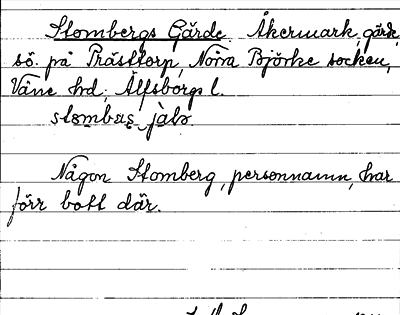 Stombergs Gärde Åkermark, gärde,
sö. på Prästtorp, Norra Björke socken,
Väne hd, Älfsborgs l.
stɷmbæs jalɷ
Någon Stomberg, personnamn, har
förr bott där.